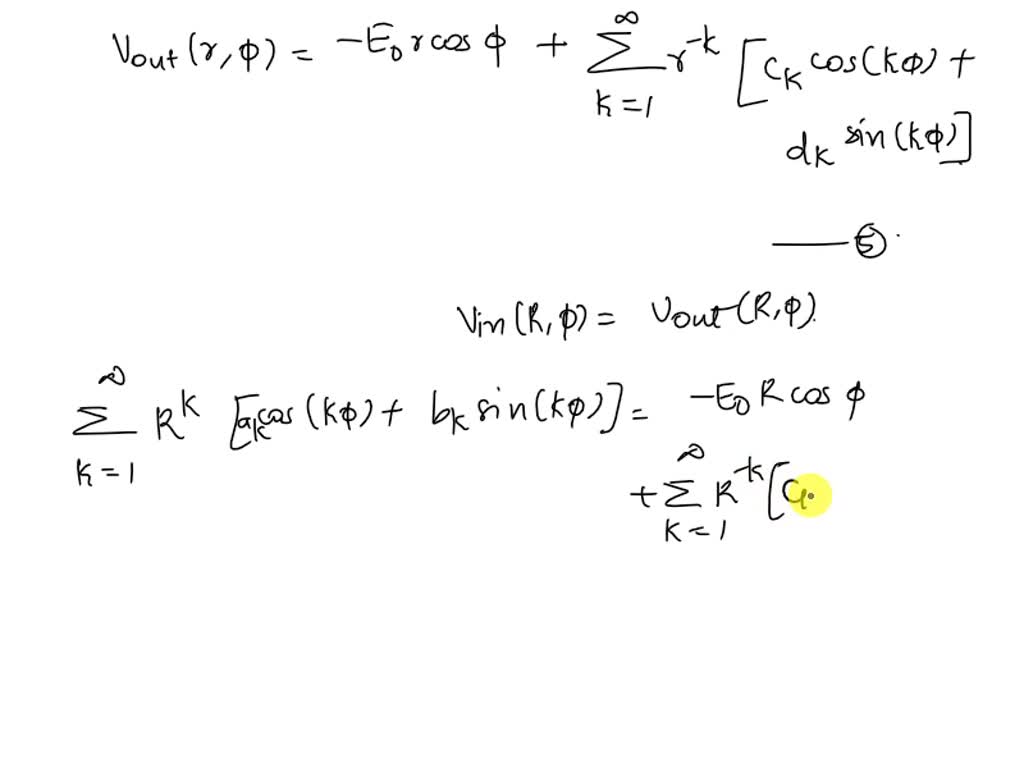 Vout (r, φ) = -E₀ r cos φ + ∞∑k=1 r^-k [C_K cos(Kφ) +
d_K sin(Kφ)]
—— ⑤
Vin (R, φ) = Vout (R, φ).
∞∑k=1 R^k [a_k cos (kφ) + b_k sin(kφ)] = -E₀ R cos φ
+ ∞∑k=1 R^-k [